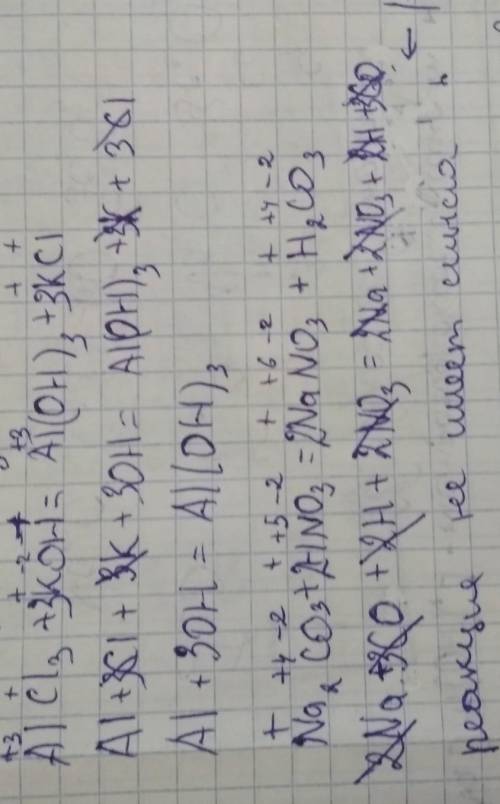 +3 + + -2 + +3 + +
AlCl₃ + 3KOH = Al(OH)₃ + 3KCl
Al + 3Cl + 3K + 3OH = Al(OH)₃ + 3K + 3Cl
Al + 3OH = Al(OH)₃
+ +4 -2 + +5 -2 + +6 -2 + +4 -2
Na₂CO₃ + 2HNO₃ = 2NaNO₃ + H₂CO₃
2Na + 3CO + 2H + 2NO₃ = 2Na + 2NO₃ + 2H + 3CO
реакция не имеет смысла